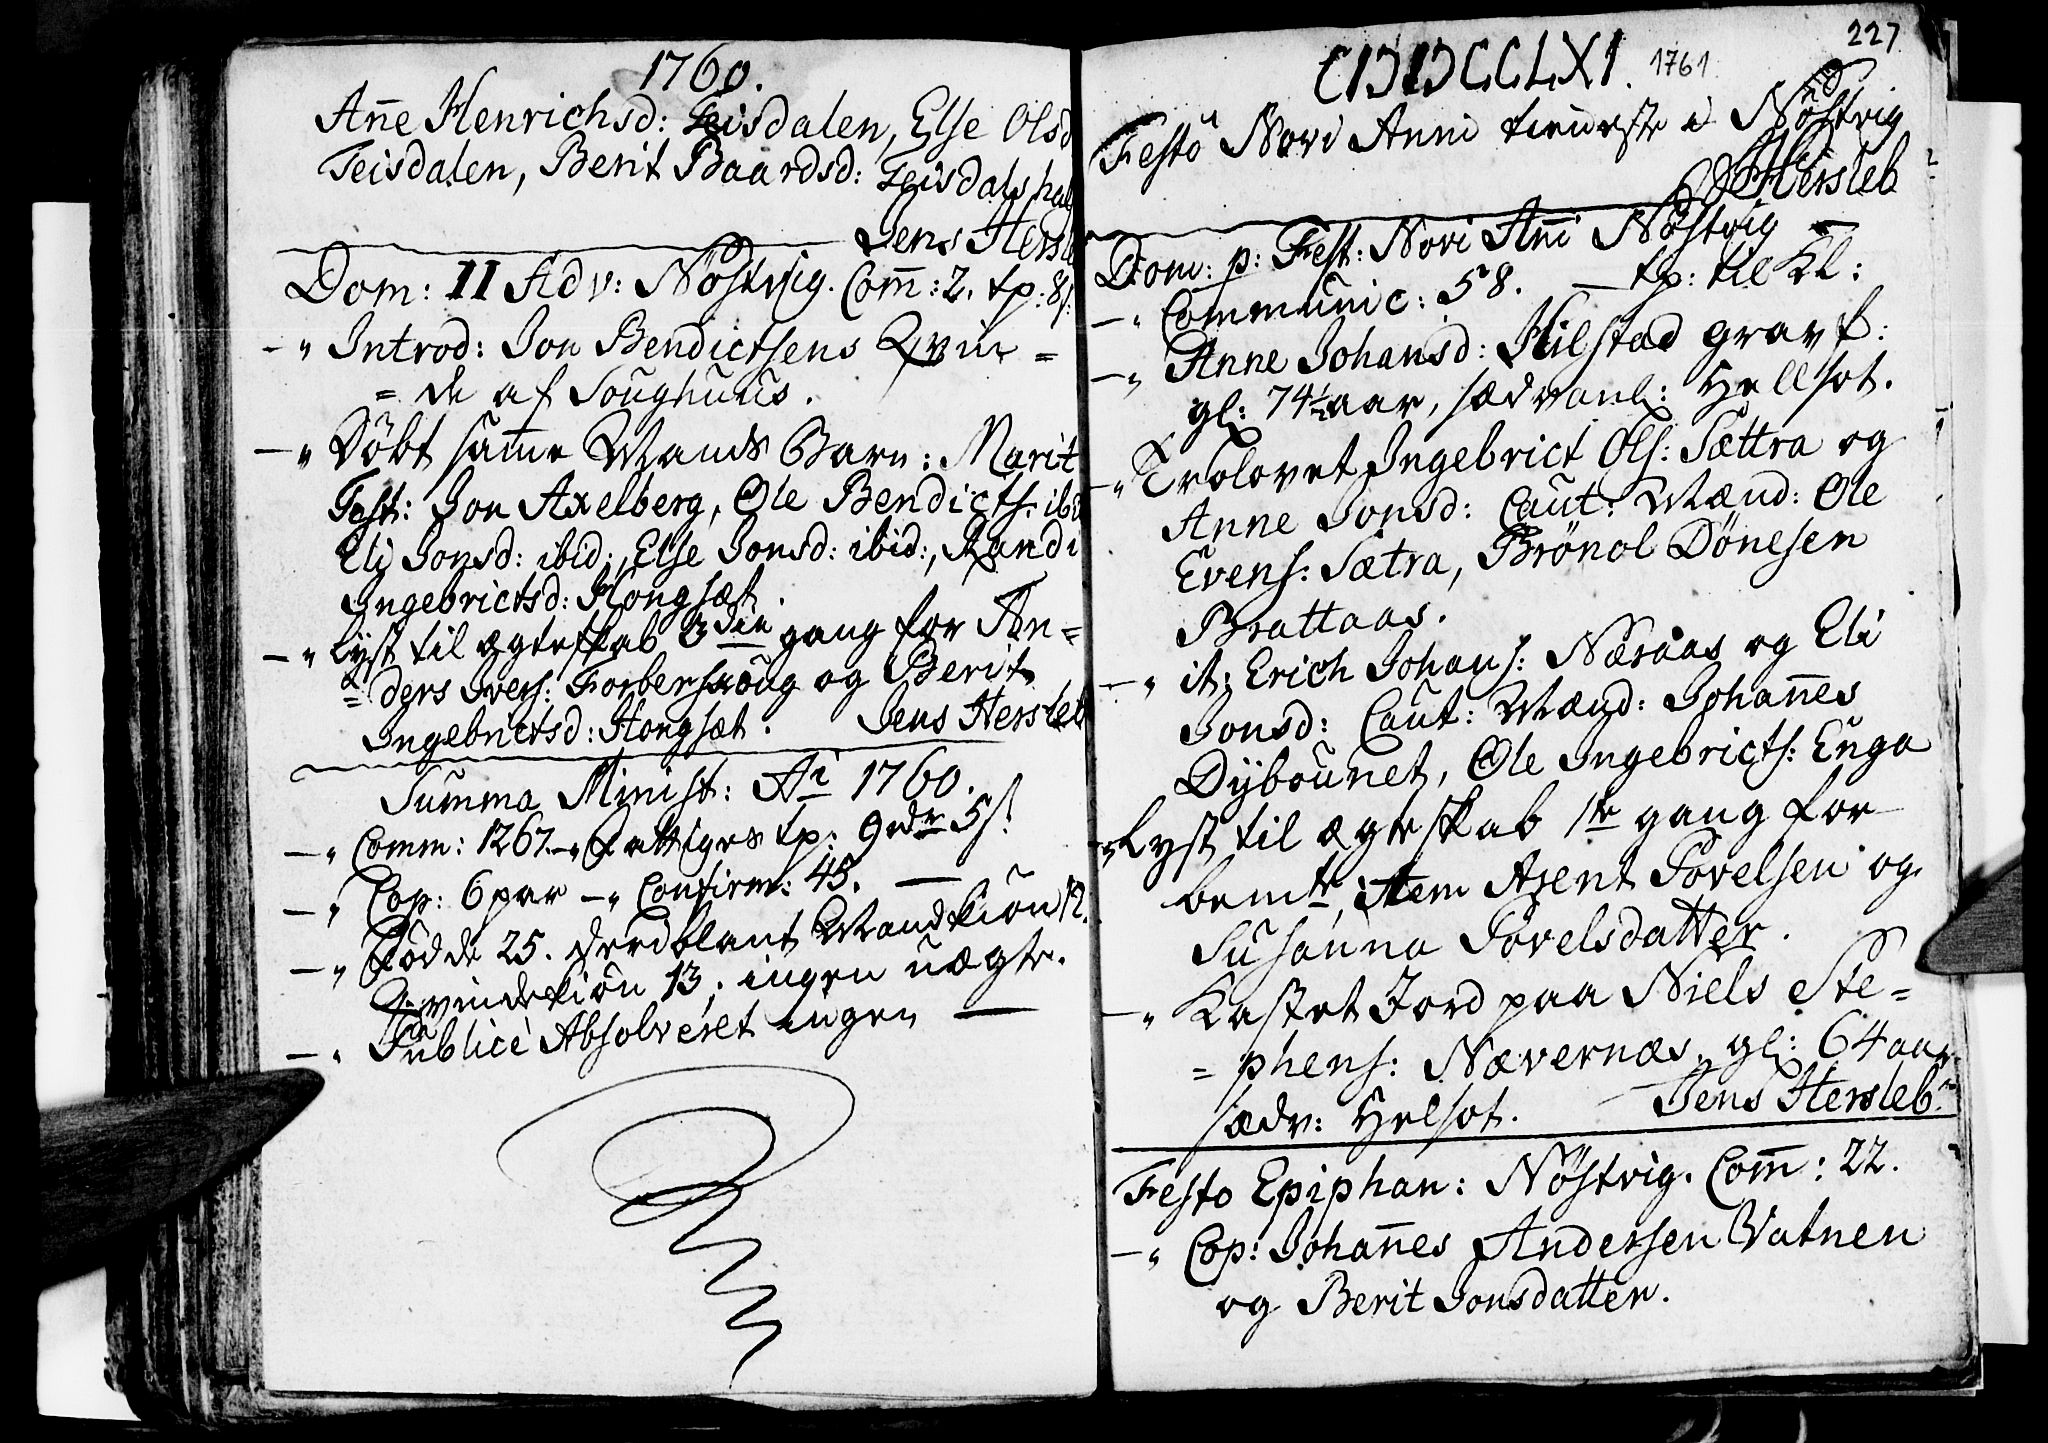 1760.
Añe Henrichsd: Feisdalen, Else Olsd
Feisdalen, Berit Baardsd: Feisdalshal
Jens Hersle
Dom: II Adv: Nöstvig. Com̄: 2. tp: 8 s:
-" Introd: Jon Bendictsens Qvin=
= de af Soughuus.
-" Döbt sam̄e Mands Barn: Marit
Test: Jon Axelberg, Ole Bendicts: ibd
Eli Jonsd: ibid:, Else Jonsd: ibid:, Randi
Ingebrictsd: Hongsæt.
-" Lyst til ægteskab 3die gang for An=
= ders Ivers: Forberskoug og Berit
Ingebrictsd: Hongsæt. Jens Hersleb
Summa Minist: Ai 1760.
-" Comm: 1267. -" Fattiges tp: 9 rdr 5 s!
-" Cop: 6 par -" Confirm: 45.
-" Födde 25. deriblant Mandkiön 12.
Qvindekiön 13; ingen uægte.
-" Publice Absolveret ingen
CIƆIƆCCLXI. 1761 227
Festo Novi Anni tieneste i Nöstvig
J Hersleb
Dom: p: Fest: Novi Añi Nöstvig
-" Communic: 58. - tp: til Kl:
-" Anne Johansd: Hilstad gravf:
gl: 74½ aar, sædvanl: Hellsot.
-" Trolovet Ingebrict Ols: Sættra og
Anne Jonsd: Caut: Mænd: Ole
Evens: Sætra, Brönol Dönesen
Brattaas.
-" it: Erich Johans: Næraas og Eli
Jonsd: Caut: Mænd: Johañes
Dybounet, Ole Ingebricts: Enga
-" Lyst til ægteskab 1te gang for
bemte, item Axent Povelsen og
Susanna Povelsdatter.
-" Kastet Jord paa Niels Ste=
= phens: Nævernæs, gl: 64 aar
sædv: Helsot. Jens Hersleb.
Festo Epiphan: Nöstvig. Com̄: 22.
-" Cop: Johañes Andersen Vatnen
og Berit Jonsdatter.